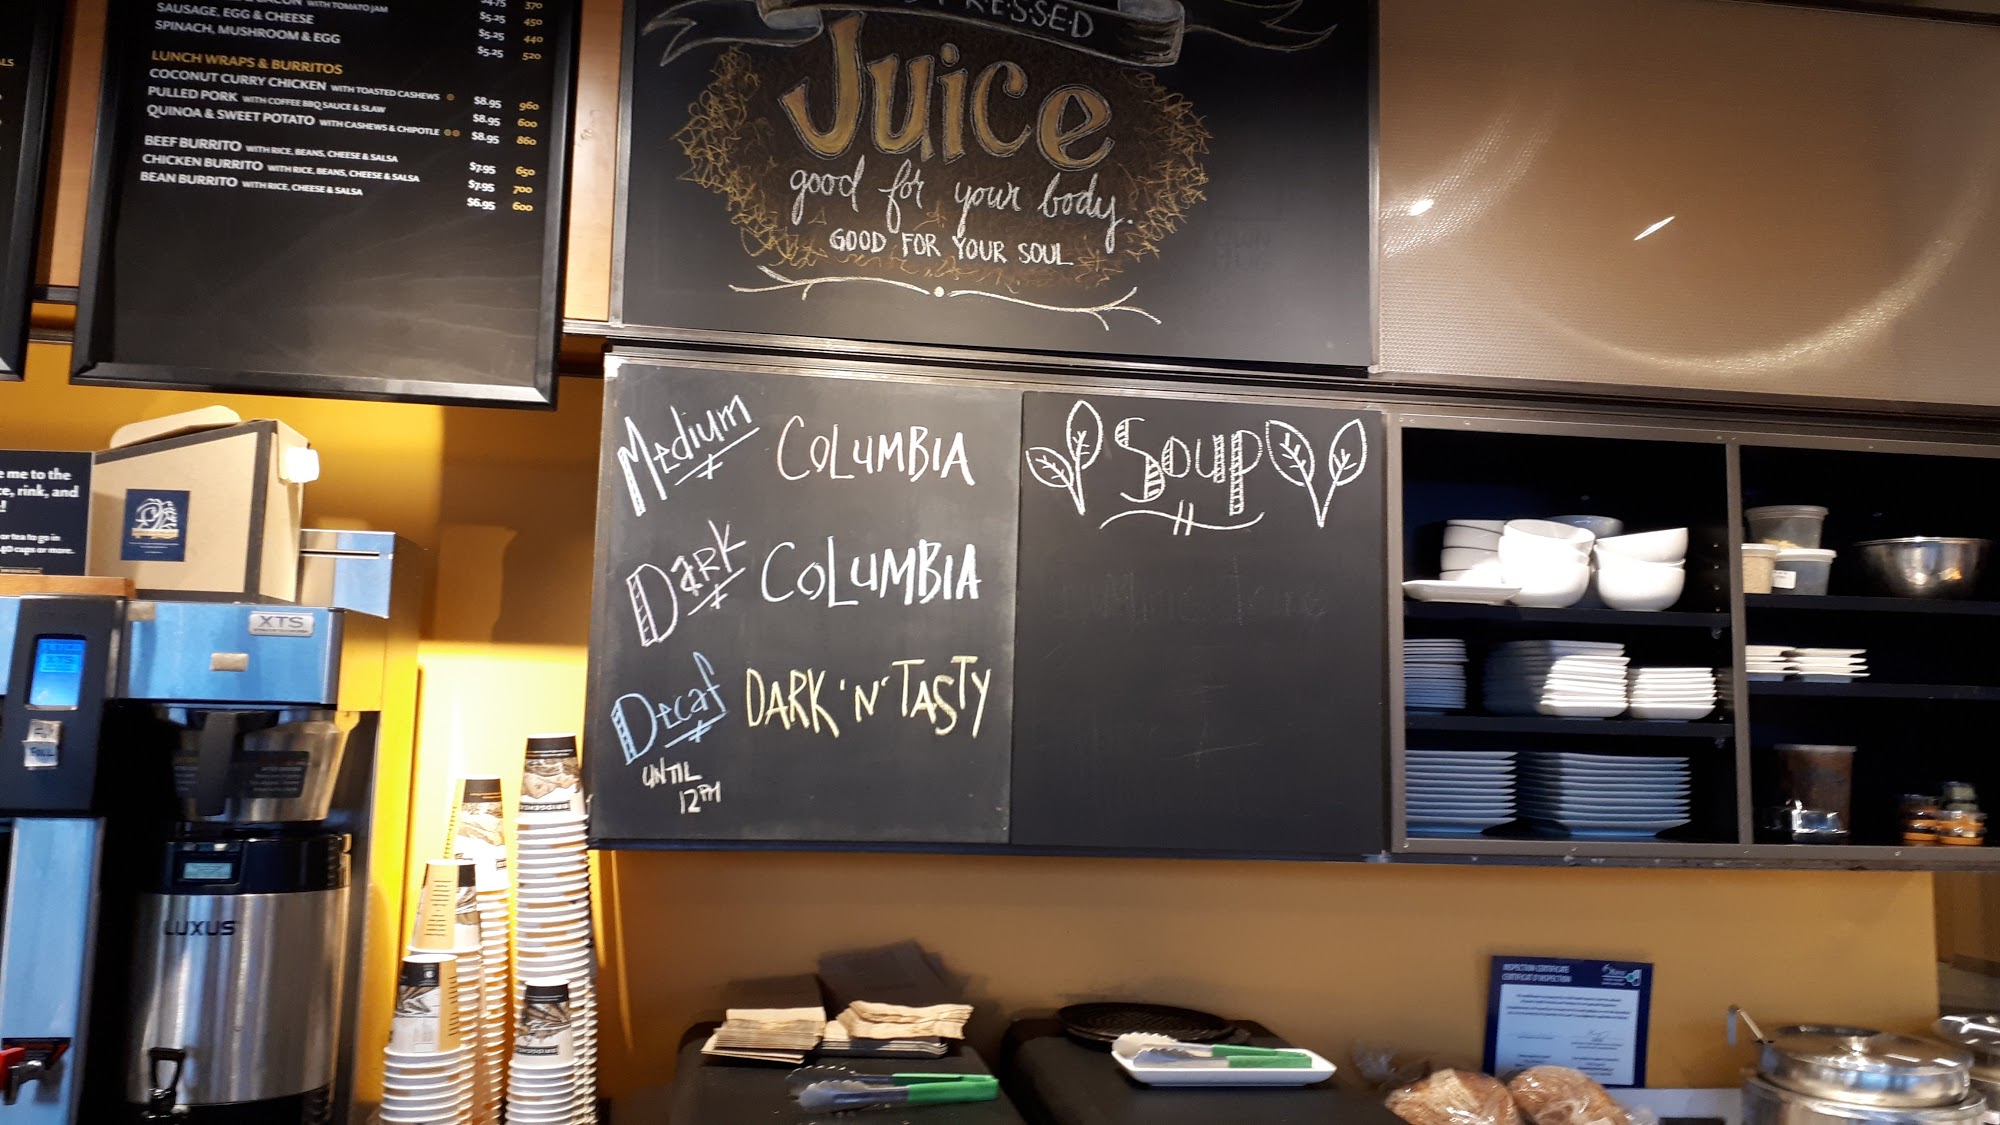 WITH TOMATO JAM $4.75 370
SAUSAGE, EGG & CHEESE $5.25 450
SPINACH, MUSHROOM & EGG $5.25 440
$5.25 520
LUNCH WRAPS & BURRITOS
COCONUT CURRY CHICKEN WITH TOASTED CASHEWS $8.95 960
PULLED PORK WITH COFFEE BBQ SAUCE & SLAW $8.95 600
QUINOA & SWEET POTATO WITH CASHEWS & CHIPOTLE $8.95 860
BEEF BURRITO WITH RICE, BEANS, CHEESE & SALSA $7.95 650
CHICKEN BURRITO WITH RICE, BEANS, CHEESE & SALSA $7.95 700
BEAN BURRITO WITH RICE, CHEESE & SALSA $6.95 600
Juice
good for your body.
GOOD FOR YOUR SOUL
Medium COLUMBIA
DARK COLUMBIA
Decaf DARK 'N' TASTY
UNTIL
12PM
Soup
me to the
rink, and
or tea to go in
cups or more.
XTS
XTS
FULL
LUXUS
BRIDGEHEAD
INSPECTION CERTIFICATE
CERTIFICAT D'INSPECTION